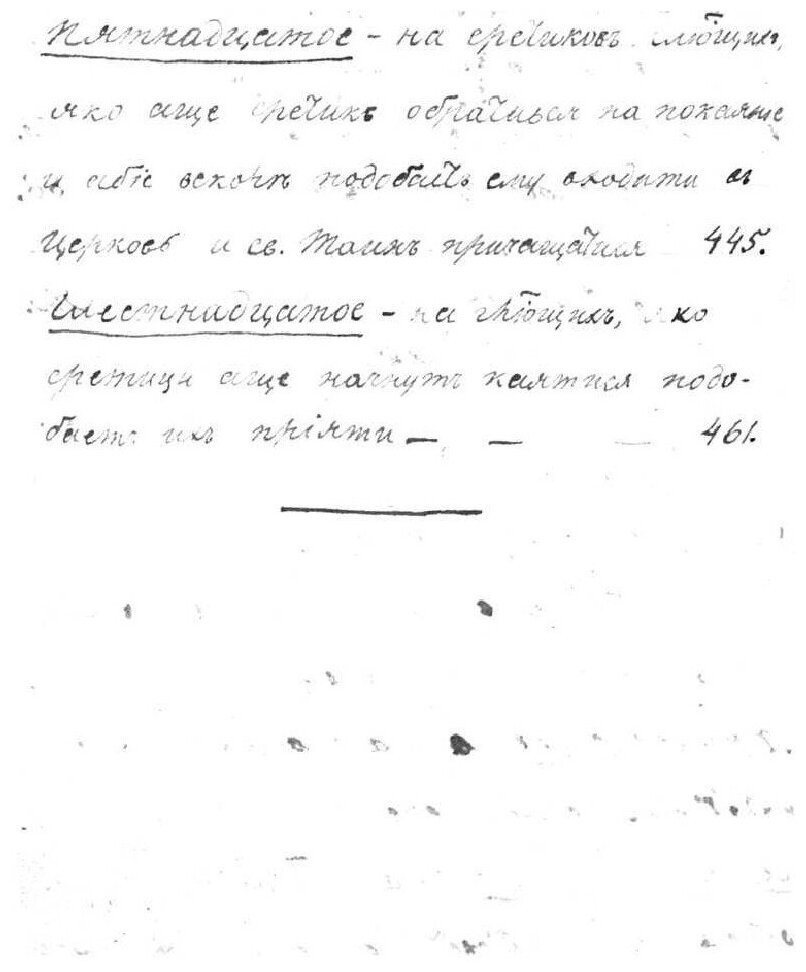 Пятнадцатое – на еретиковъ глющихъ,
яко аще еретикъ обратився на покаяніе
и абіе вскорѣ подобаетъ ему входити въ
Церковь и св. Таинъ причащатися 445.
Шестнадцатое – на глющихъ, яко
еретици аще начнутъ каятися подо-
баетъ ихъ пріяти — — — 461.